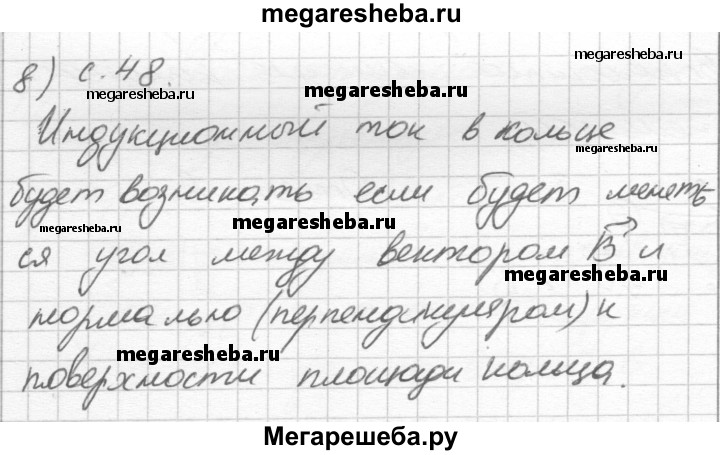 megaresheba.ru
8) с. 48.
megaresheba.ru
megaresheba.ru
megaresheba.ru
Индукционный ток в кольце
megaresheba.ru
будет возникать если будет менеть
megaresheba.ru
megaresheba.ru
ся угол между вектором B и
megaresheba.ru
нормально (перпендикуляром) к
megaresheba.ru
поверхности площади кольца.
Мегарешеба.ру